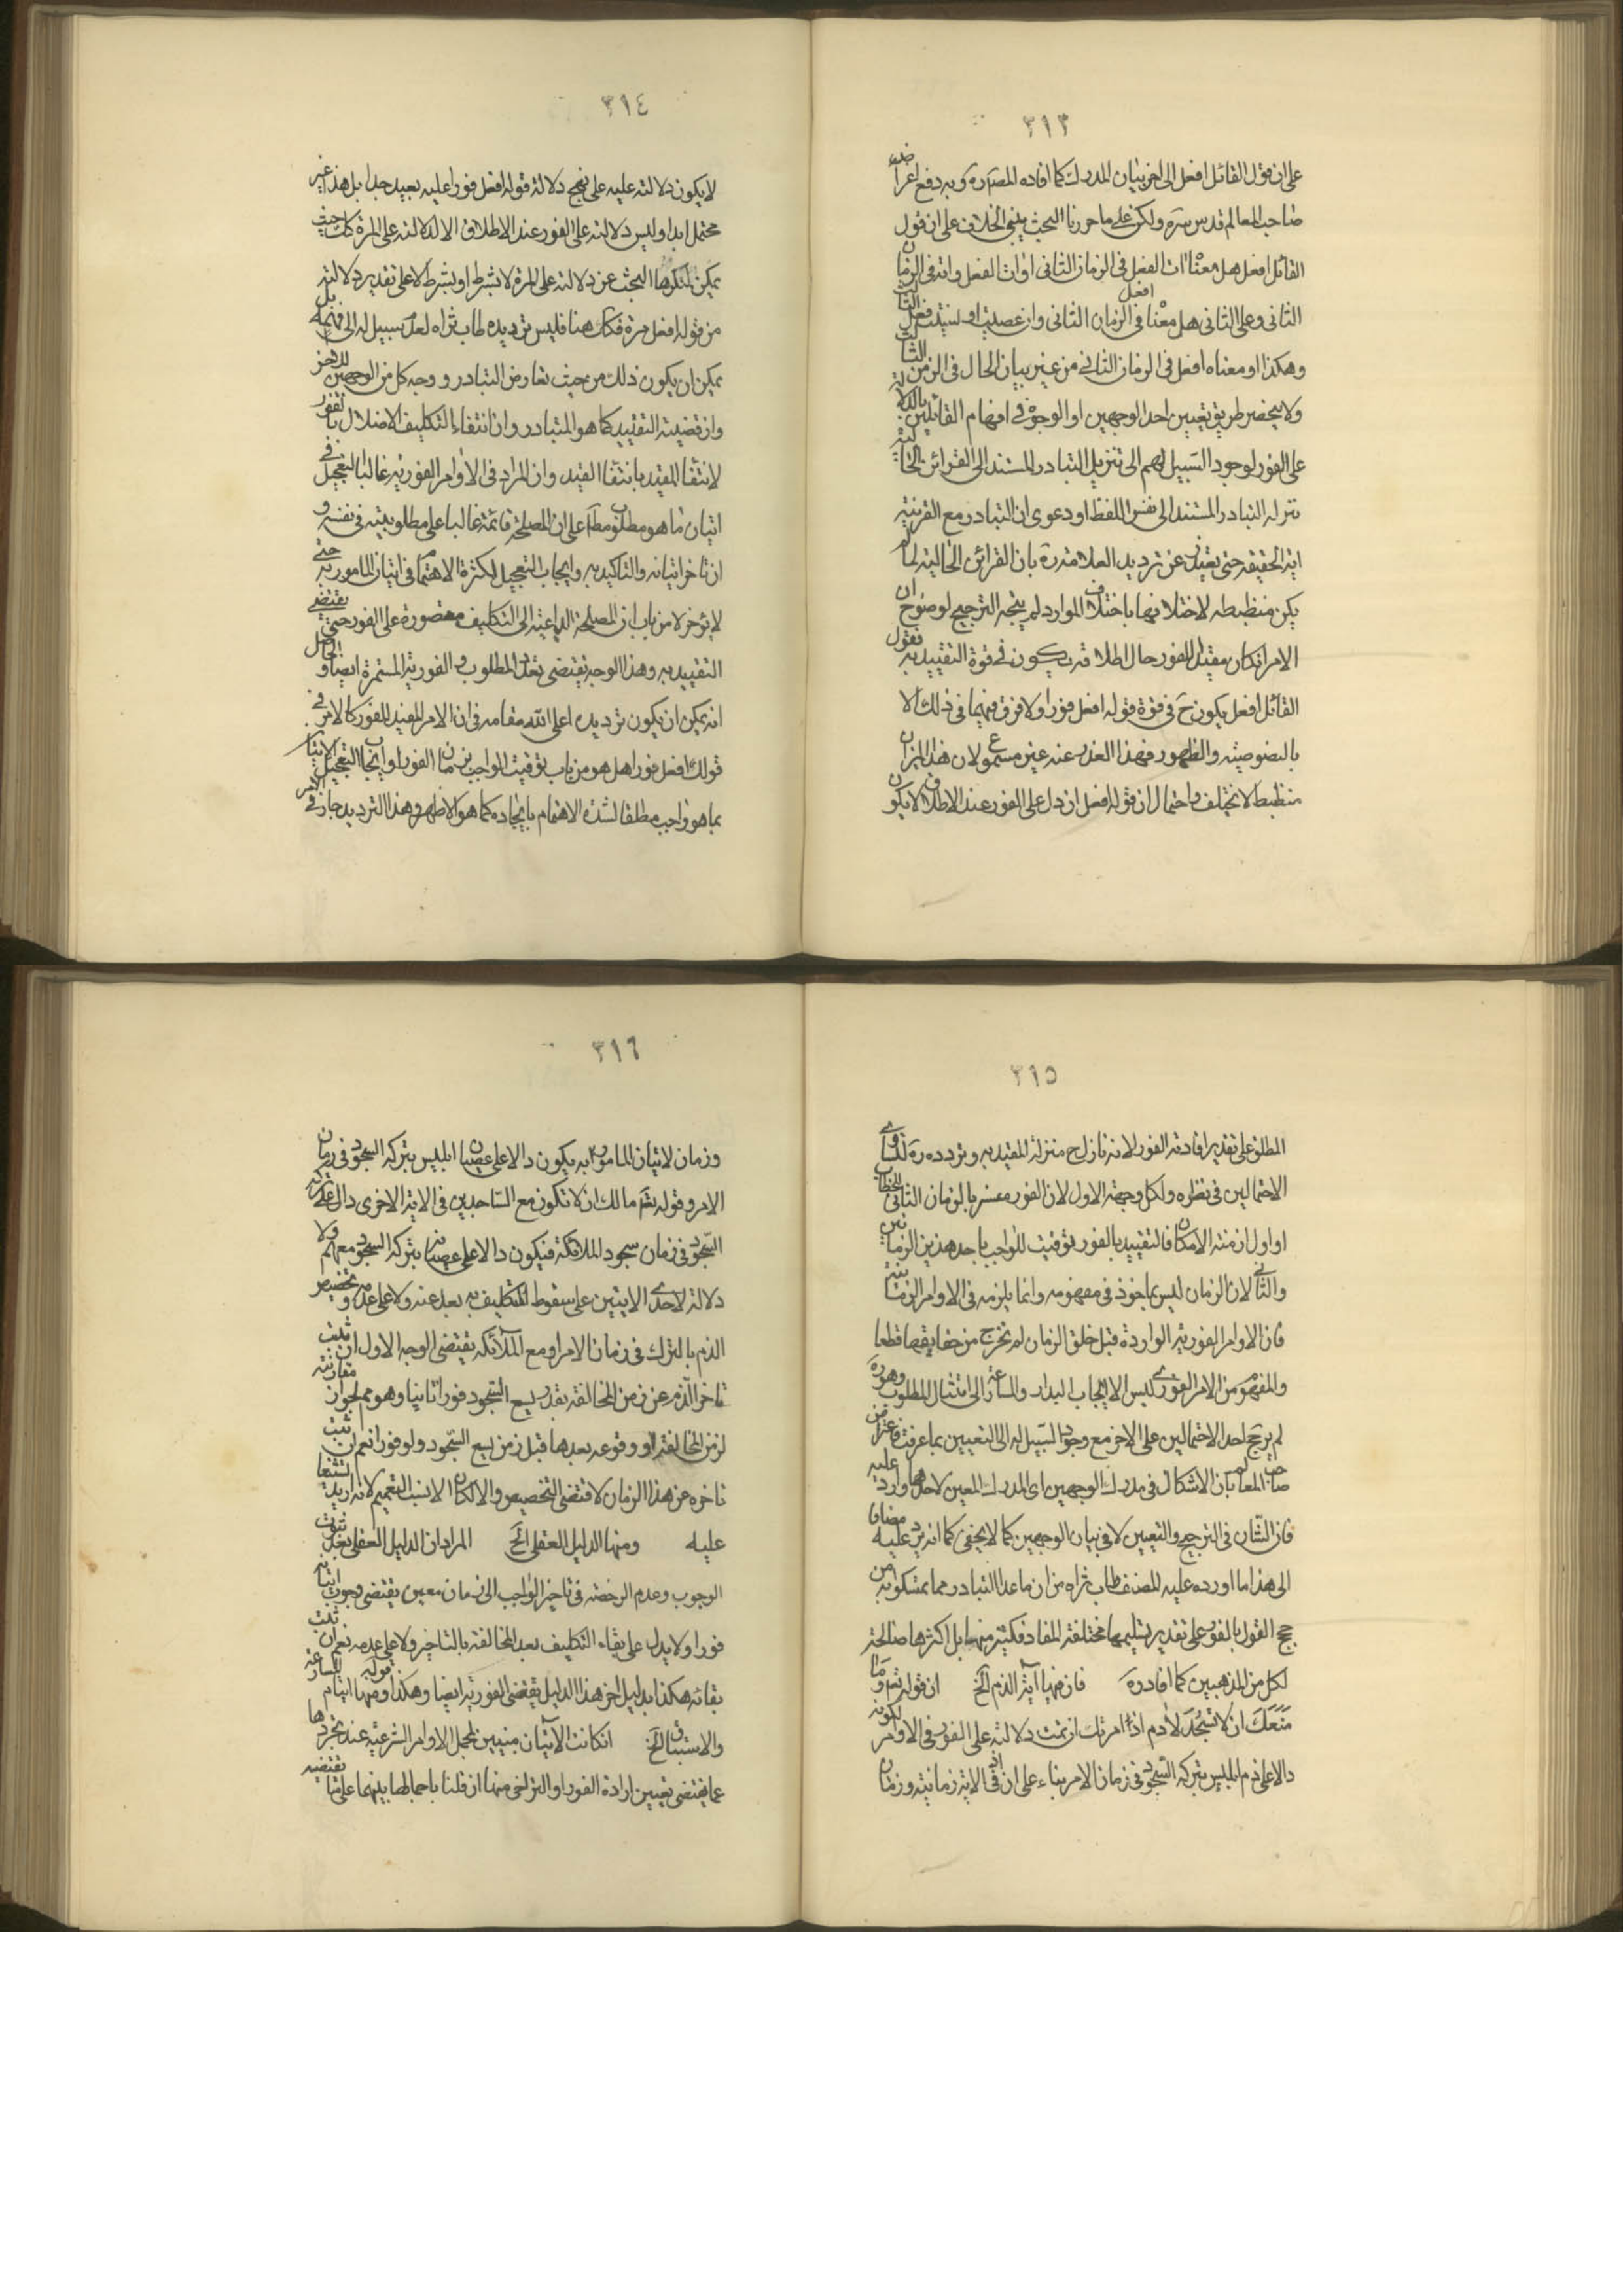 ٣١٣
على ان قول القائل افعل الى اخر بيان المدرك كما افاده المصـ ره وبه دفع اعتراض
صاحب المعالم قدس سره ولكن على ما حررنا البحث يبتنى الخلاف على ان قول
القائل افعل هل معناه ات الفعل فى الزمان الثانى او ات الفعل واته فى الزمان
الثانى وعلى الثانى هل معناه افعل فى الزمان الثانى وان عصيت او نسيت ففى الثالث
وهكذا او معناه افعل فى الزمان الثانى من غير بيان الحال فى الزمن الثالث
ولا ينحصر طريق تعيين احد الوجهين او الوجوه فى افهام القائلين بالدلالة
على الفور لوجود السبيل لهم الى تنزيل التبادر المستند الى القرائن الحالية
منزلة التبادر المستند الى نفس اللفظ او دعوى ان التبادر مع القرينة
اية الحقيقة حتى يعتذر عن ترديد العلامة ره بان القرائن الحالية لما لم
يكن منضبطه لاختلافها باختلاف الموارد لم يتجه الترجيح لوضوح ان
الامر ان كان مفيدا للفور حال اطلاقه يكون فى قوة التقييد به فقول
القائل افعل يكون ح فى قوة قوله افعل فورا ولا فرق فيهما فى ذلك الا
بالنصوصية والظهور فهذا العذر عنه غير مسموع لان هذا الميزان
منضبط لا يختلف واحتمال ان قوله افعل ان دل على الفور عند الاطلاق لا يكون
٣١٤
لا يكون دلالته عليه على نهج دلالة قوله افعل فورا عليه بعيد جدا بل هذا غير
محتمل ابدا وليس دلالته على الفور عند الاطلاق الا كدلالته على المرة كك حيث
يمكن لمنكرها البحث عن دلالته على المرة لا بشرط او بشرط لا على تقدير دلالته
من قوله افعل مرة فكك هنا فليس ترديده طاب ثراه لعدم سبيل له الى فهمه بل
يمكن ان يكون ذلك من حيث تعارض التبادر ووجه كل من الوجهين للاخر
وان قضية التقييد كما هو المتبادر وان انتفاء التكليف الاخلال بالفور
لانتفاء المقيد بانتفاء القيد وان المراد فى الاوامر الفورية غالبا التعجيل فى
اتيان ما هو مطلوب مطلقا على ان المصلحة قائمة غالبا على مطلوبيته فى نفسه و
ان تاخر اتيانه والتاكيد به وايجاب التعجيل لكثرة الاهتمام فى اتيان المامور به حتى
لا يؤخر لا من باب ان المصلحة الداعية الى التكليف مقصورة على الفور حتى يقتضى
التقييد به وهذا الوجه يقتضى تعدد المطلوب و الفورية المستمرة ايضا والحاصل
انه يمكن ان يكون ترديده اعلى الله مقامه فى ان الامر المفيد للفور كالامر فى
قولك افعل فورا هل هو من باب توقيت الواجب بزمان الفور او ايجاب التعجيل الاتيان
بما هو واجب مطلقا لشدة الاهتمام بايجاده كما هو الاظهر وهذا الترديد جار فى الامر
٣١٥
المطلق على تقدير افادته الفور لانه نازل ح منزلة المقيد به وتردده ره لتساوى
الاحتمالين فى نظره ولكل وجه الاول لان الفور مفسر بالزمان الثانى للخطاب
او اول ازمنة الامكان فالتقييد بالفور توقيت للواجب باحد هذين الزمانين
والثانى لان الزمان ليس ماخوذ فى مفهومه وانما يلزمه فى الاوامر الزمانية
فان الاوامر الفورية الواردة قبل خلق الزمان لم تخرج من حقايقها قطعا
والمفهوم من الامر الفورى ليس الا ايجاب البدار والمسارعة الى امتثال المطلوب وهو ره
لم يرجح احد الاحتمالين على الاخر مع وجود السبيل له الى التعيين بما عرفت فاعتراض
صاحب المعالم بان الاشكال فى مدرك الوجهين اى المدرك المعين لاحدهما وارد عليه
فان الشان فى الترجيح والتعيين لا فى بيان الوجهين كما لا يخفى كما انه يرد عليه مضافا
الى هذا ما اورده عليه المصنف طاب ثراه من ان ما عدا التبادر مما تمسكوا به من
حجج القول بالفور على تقدير تسليمها مختلفة المفاد فكثير منها بل اكثرها صالحة
لكل من المذهبين كما افاد ره فان فيها آية الذم الخ ان قوله تعم وما
مَنَعَكَ ان لا تسْجُدَ لادم اذ امرتك ان تمت دلالته على الفور فى الاوامر لكونه
دالا على ذم ابليس بتركه السجود فى زمان الامر بناء على ان اذ فى الاية زمانية وزمان
٣١٦
وزمان لاتيان المامور به يكون دالا على عصيان ابليس بتركه السجود فى زمان
الامر وقوله تعم مالك ان لا تكون مع الساجدين فى الاية الاخرى دال على تركه
السجود فى زمان سجود الملائكة فيكون دالا على عصيانه بتركه السجود معهم ولا
دلالة لاحدى الايتين على سقوط التكليف به بعد عنه ولا على عدمه وتخصيص
الذم بالترك فى زمان الامر او مع الملائكة يقتضى الوجه الاول ان ثبت
تاخر الذم عن زمن المخالفة بقدر يسع السجود فورا ثانيا وهو مم لجواز مقارنته
لزمن المخالفة او وقوعه بعدها قبل زمن يسع السجود ولو فورا نعم ان ثبت
تاخره عن هذا الزمان لاقتضى التخصيص والا لكان الانسب التعميم لانه ازيد تشنيعا
عليه ومنها الدليل العقلى الخ المراد ان الدليل العقلى بعد ثبوت
الوجوب وعدم الرخصة فى تاخير الواجب الى زمان معين يقتضى وجوب اتيانه
فورا ولا يدل على بقاء التكليف بعد المخالفة بالتاخير ولا على عدمه نعم ان ثبت
بقائه هكذا بدليل اخر هذا الدليل يقتضى الفورية ايضا وهكذا قوله ومنها ايتا المسارعة
والاستباق الخ ان كانت الآيتان مبنيتين لمجمل الاوامر الشرعية عند تجردها
عما يقتضى تعيين ارادة الفور او التراخى منها ان قلنا باجمالها بينهما على ما يقتضيه